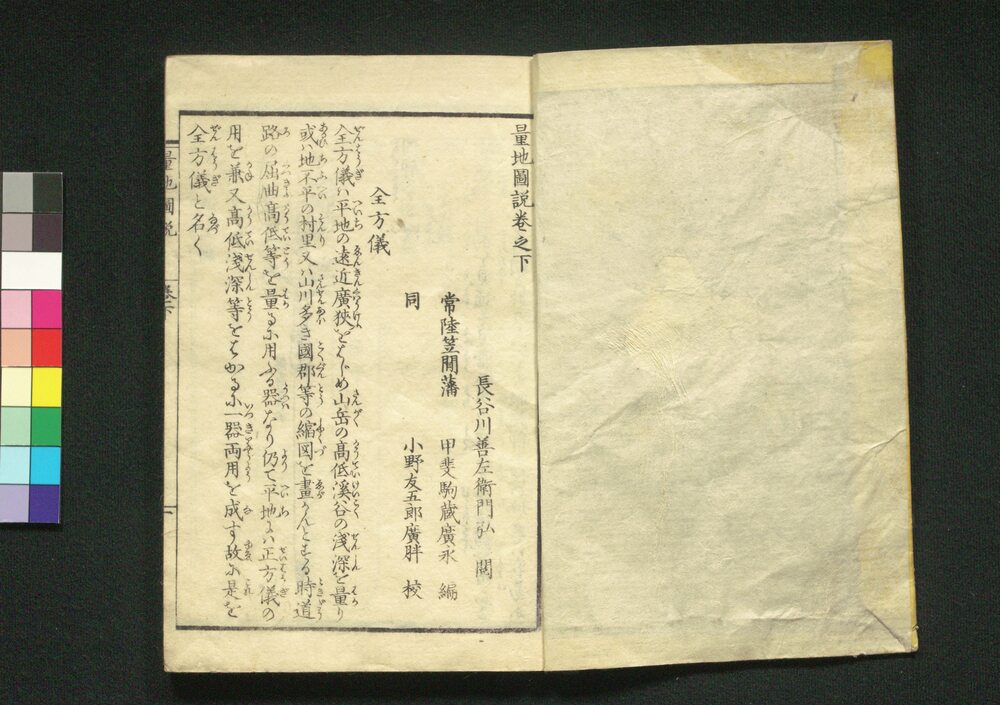 量地圖說卷之下
長谷川善左衛門弘 閱
常陸笠間藩 甲斐駒蔵廣永 編
同 小野友五郎廣胖 校
全方儀
全方儀ハ平地の遠近廣狹をはじめ山岳の高低溪谷の淺深を量り
或ハ地不平の村里又ハ山川多き國郡等の縮図を畫かんとする時道
路の屈曲高低等を量るに用ふる器なり仍て平地にハ正方儀の
用を兼又高低淺深等をはかるに一器両用を成す故に是を
全方儀と名く
量地圖說 卷下 一